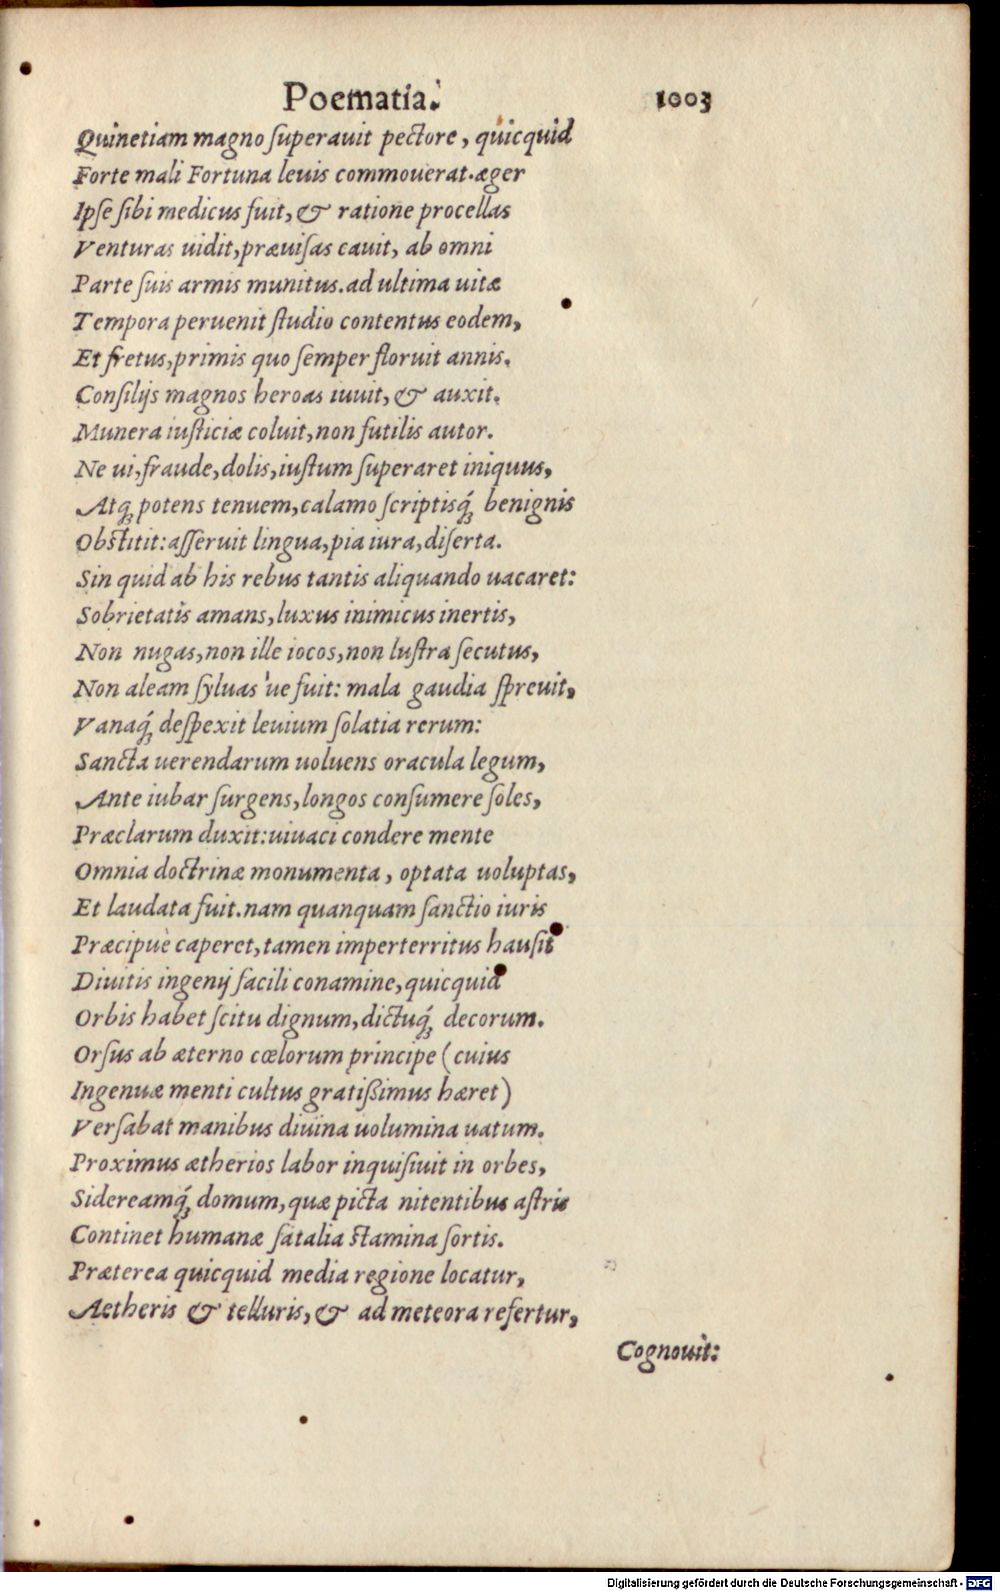 Poematia. 1003
Quinetiam magno ſuperauit pectore, quicquid
Forte mali Fortuna leuis commouerat. æger
Ipſe ſibi medicus fuit, & ratione procellas
Venturas uidit, præuiſas cauit, ab omni
Parte ſuis armis munitus. ad ultima uitæ
Tempora peruenit ſtudio contentus eodem,
Et fretus, primis quo ſemper floruit annis.
Conſilijs magnos heroas iuuit, & auxit.
Munera iuſticiæ coluit, non futilis autor.
Ne ui, fraude, dolis, iuſtum ſuperaret iniquus,
Atq́ꝫ potens tenuem, calamo ſcriptisq́ꝫ benignis
Obſtitit: aſſeruit lingua, pia iura, diſerta.
Sin quid ab his rebus tantis aliquando uacaret:
Sobrietatis amans, luxus inimicus inertis,
Non nugas, non ille iocos, non luſtra ſecutus,
Non aleam ſyluas 'ue fuit: mala gaudia ſpreuit,
Vanaq́ꝫ deſpexit leuium ſolatia rerum:
Sancta uerendarum uoluens oracula legum,
Ante iubar ſurgens, longos conſumere ſoles,
Præclarum duxit: uiuaci condere mente
Omnia doctrinæ monumenta, optata uoluptas,
Et laudata fuit. nam quanquam ſanctio iuris
Præcipuè caperet, tamen imperterritus hauſit
Diuitis ingenij facili conamine, quicquid
Orbis habet ſcitu dignum, dictuq́ꝫ decorum.
Orſus ab æterno cœlorum principe (cuius
Ingenuæ menti cultus gratißimus hæret)
Verſabat manibus diuina uolumina uatum.
Proximus ætherios labor inquiſiuit in orbes,
Sidereamq́ꝫ domum, quæ picta nitentibus aſtris
Continet humanæ fatalia ſtamina ſortis.
Præterea quicquid media regione locatur,
Aetheris & telluris, & ad meteora refertur,
Cognouit:
Digitalisierung gefördert durch die Deutsche Forschungsgemeinschaft - DFG